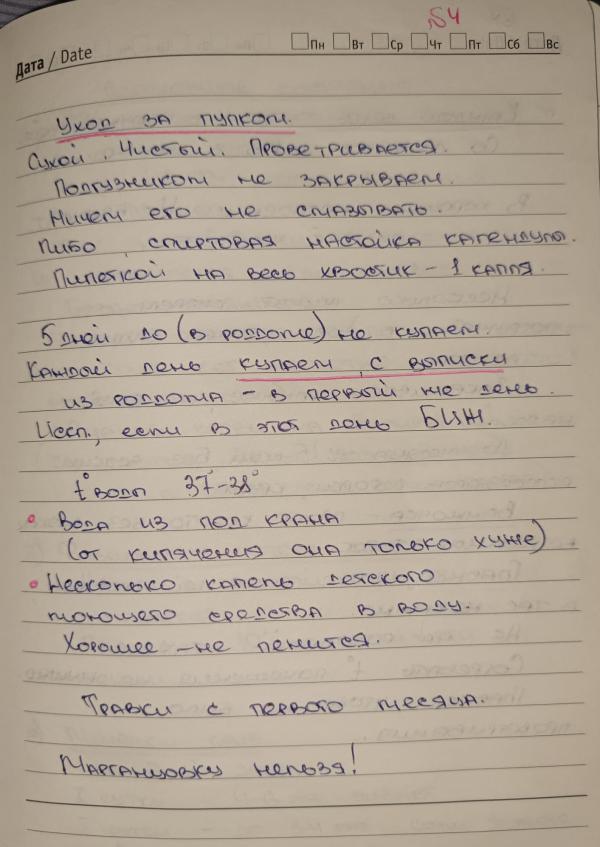 54
Дата / Date Пн Вт Ср Чт Пт Сб Вс
Уход за пупком.
Сухой. Чистый. Проветривается.
Подгузником не закрываем.
Ничем его не смазывать.
Либо, спиртовая настойка календулы.
Пипеткой на весь хвостик – 1 капля.
5 дней до (в роддоме) не купаем.
Каждый день купаем, с выписки
из роддома – в первый же день.
Искл., если в этот день БЦЖ.
t° воды 37°-38°
Вода из под крана
(от кипячения она только хуже)
Несколько капель детского
моющего средства в воду.
Хорошее – не пенится.
Травки с первого месяца.
Марганцовку нельзя!